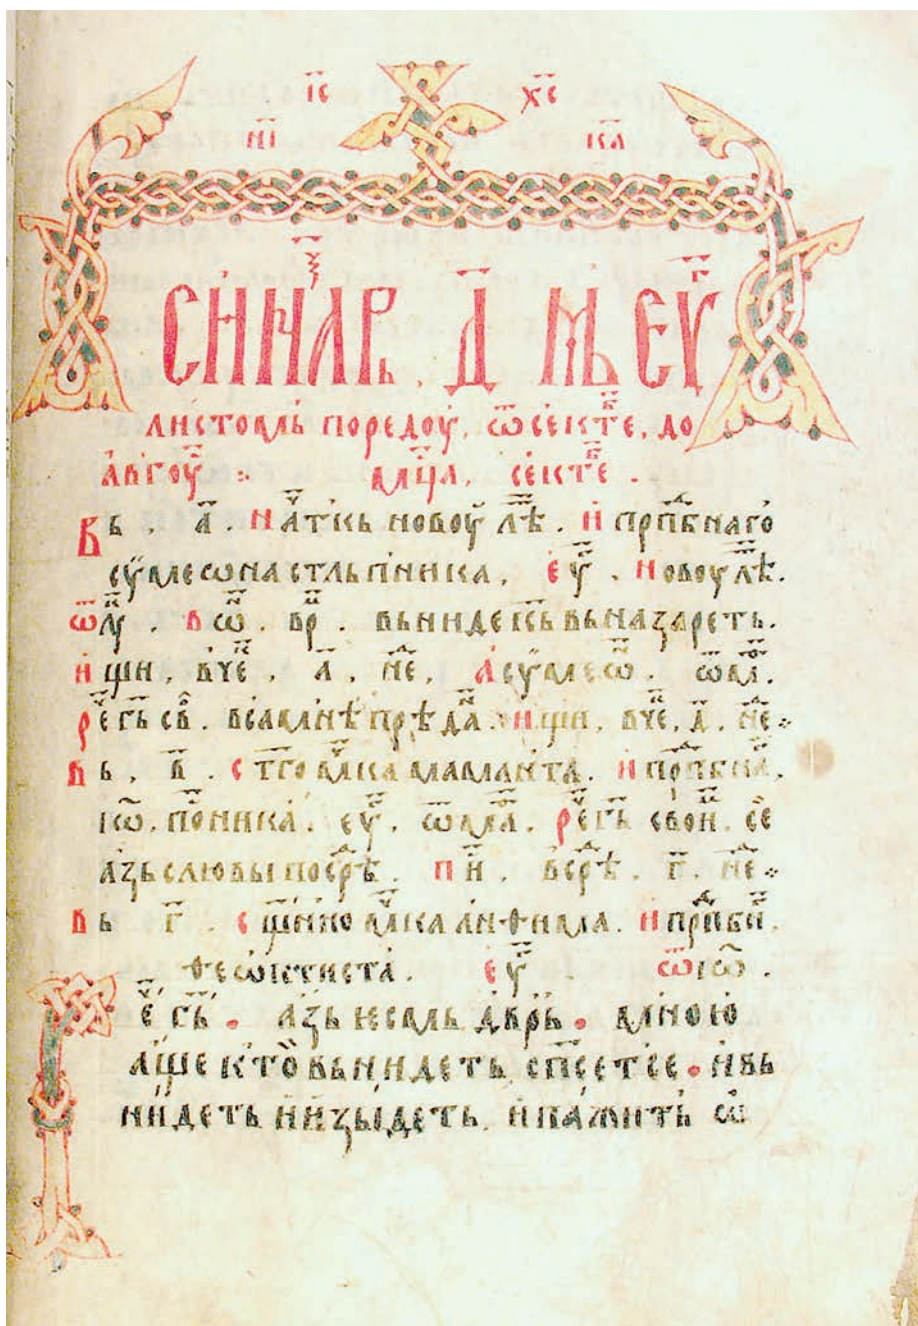 іс хс
ни ка
синаѯар , д҃ мъ еуⷢ
листомь поредоу , ѿ сектеⷡ , до
авгоуⷭ :· мц҃а , сектеⷡ .
Вь , а҃ . начеткь новоу лѣⷮ . и прпⷣбнаго
сѵмеѡна стльпника , еуⷢ , новоу лѣⷮ .
ѿ луⷦ . въ ѡⷩ . врⷨ . вьниде іс҃ь вь назареть .
ищи , в҃ , а҃ , неⷣ , а сѵмеѡⷩ . ѿ маⷴ .
реⷱ гь҃ св . вса мнѣ прѣдаⷩ . ищи , в҃ , д҃ , неⷣ :·
Вь , в҃ . стго мⷱка маманта . и прпⷣбнаⷢ ,
іѡ . поⷭника . еуⷢ , ѿ маⷴ . реⷱ гь҃ своиⷨ . се
азь слю вы посрⷣѣ . пиⷭ . в срⷣѣ . г҃ . неⷣ :·
Вь г҃ . сщ҃нно мⷱка анѳима . и прпⷣбнⷢ .
ѳеѡктиста . еуⷢ ѿ іѡⷩ .
Реⷱ гь҃ . азь несмь двьрь . мною
аще кто вьнидеть сп҃сетсе . и вь
нидеть и изыдеть , и пажить ѡ